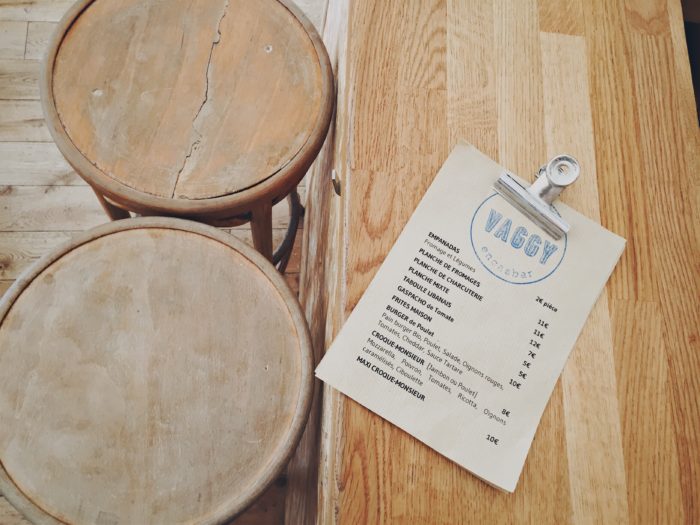 VAGGY
encasbar
EMPANADAS
Fromage et Légumes 2€ pièce
PLANCHE DE FROMAGES 11€
PLANCHE DE CHARCUTERIE 11€
PLANCHE MIXTE 12€
TABOULE LIBANAIS 7€
GASPACHO de Tomate 5€
FRITES MAISON 5€
BURGER de Poulet 10€
Pain burger Bio, Poulet, Salade, Oignons rouges,
Tomates, Cheddar, Sauce Tartare
CROQUE-MONSIEUR [Jambon ou Poulet] 8€
Mozzarella, Poivron, Tomates, Ricotta, Oignons
caramélisés, Ciboulette
MAXI CROQUE-MONSIEUR 10€